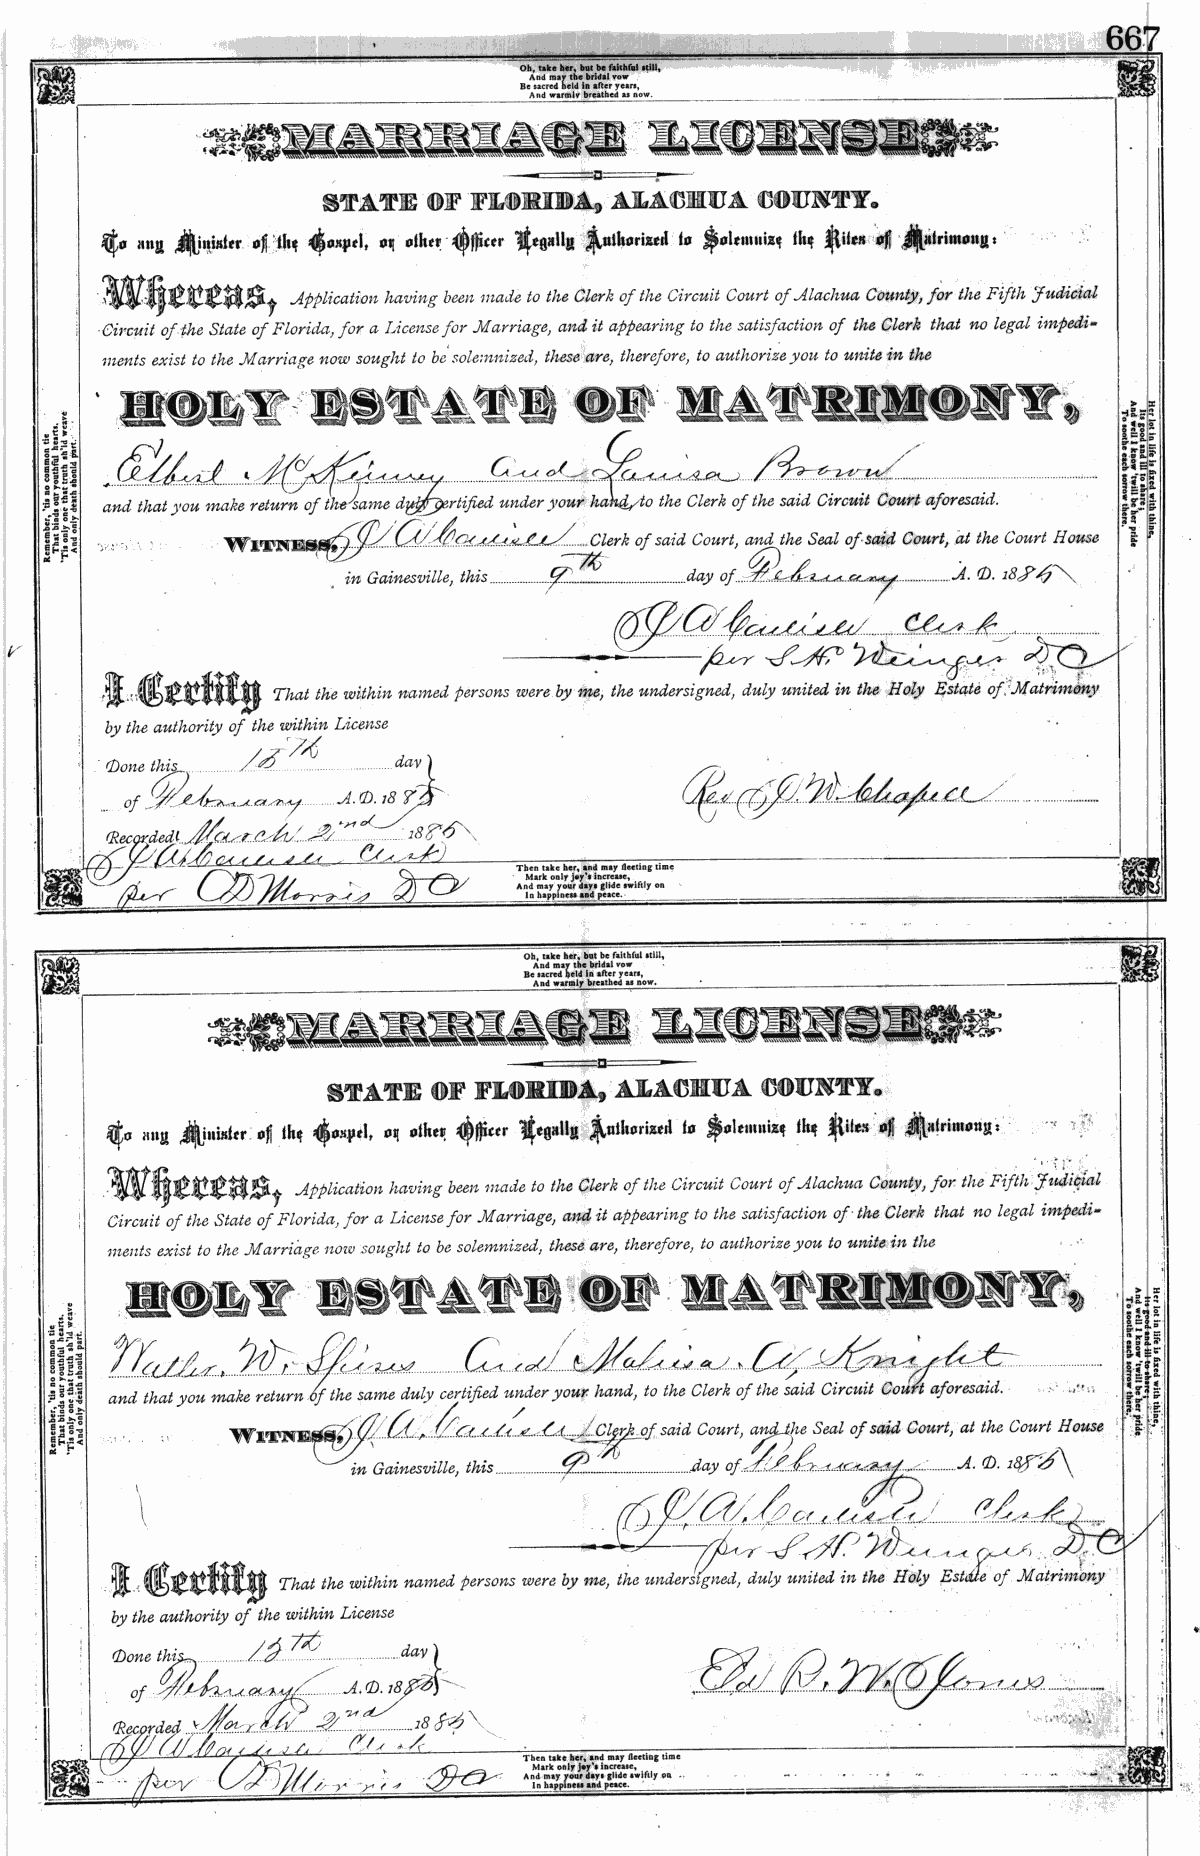 667
Oh, take her, but be faithful still,
And may the bridal vow
Be sacred held in after years,
And warmly breathed as now.
MARRIAGE LICENSE
STATE OF FLORIDA, ALACHUA COUNTY.
To any Minister of the Gospel, or other Officer Legally Authorized to Solemnize the Rites of Matrimony:
Whereas, Application having been made to the Clerk of the Circuit Court of Alachua County, for the Fifth Judicial
Circuit of the State of Florida, for a License for Marriage, and it appearing to the satisfaction of the Clerk that no legal impedi-
ments exist to the Marriage now sought to be solemnized, these are, therefore, to authorize you to unite in the
HOLY ESTATE OF MATRIMONY,
Elbert McKinney and Louisa Brown
and that you make return of the same duly certified under your hand, to the Clerk of the said Circuit Court aforesaid.
WITNESS, J A Carlisle Clerk of said Court, and the Seal of said Court, at the Court House
in Gainesville, this 9th day of February A. D. 1885
J A Carlisle Clerk
per S. H. Wienges D C
I Certify That the within named persons were by me, the undersigned, duly united in the Holy Estate of Matrimony
by the authority of the within License
Done this 15th day
of February A.D. 1885
Rev J. W. Chapell
Recorded March 2nd 1885
J A Carlisle Clerk
per C D Morris D C
Then take her, and may fleeting time
Mark only joy's increase,
And may your days glide swiftly on
In happiness and peace.
Remember, 'tis no common tie
That binds our youthful hearts,
'Tis only one that truth sh'ld weave
And only death should part.
Her lot in life is fixed with thine,
Its good and ill to share;
And well I know 'twill be her pride
To soothe each sorrow there.
Oh, take her, but be faithful still,
And may the bridal vow
Be sacred held in after years,
And warmly breathed as now.
MARRIAGE LICENSE
STATE OF FLORIDA, ALACHUA COUNTY.
To any Minister of the Gospel, or other Officer Legally Authorized to Solemnize the Rites of Matrimony:
Whereas, Application having been made to the Clerk of the Circuit Court of Alachua County, for the Fifth Judicial
Circuit of the State of Florida, for a License for Marriage, and it appearing to the satisfaction of the Clerk that no legal impedi-
ments exist to the Marriage now sought to be solemnized, these are, therefore, to authorize you to unite in the
HOLY ESTATE OF MATRIMONY,
Walter. W. Spires and A, Knight
and that you make return of the same duly certified under your hand, to the Clerk of the said Circuit Court aforesaid.
WITNESS, J. A. Carlisle Clerk of said Court, and the Seal of said Court, at the Court House
in Gainesville, this 9th day of February A. D. 1885
J. A. Carlisle Clerk
per S. H. Wienges D. C
I Certify That the within named persons were by me, the undersigned, duly united in the Holy Estate of Matrimony
by the authority of the within License
Done this 15th day
of February A.D. 1885
R. W. Jones
Recorded March 2nd 1885
J A Carlisle Clerk
per C D Morris D C
Then take her, and may fleeting time
Mark only joy's increase,
And may your days glide swiftly on
In happiness and peace.
Remember, 'tis no common tie
That binds our youthful hearts.
'Tis only one that truth sh'ld weave
And only death should part.
Her lot in life is fixed with thine,
Its good and ill to share;
And well I know 'twill be her pride
To soothe each sorrow there.